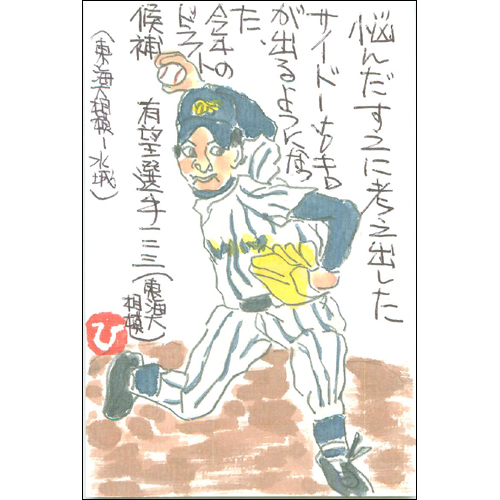 悩んだすえに考え出した
サイド
が出るようになっ
た、
今年の
ドラフト
候補
有望選手
(東海大
相模)
(東海大相模ー水城)
ひ